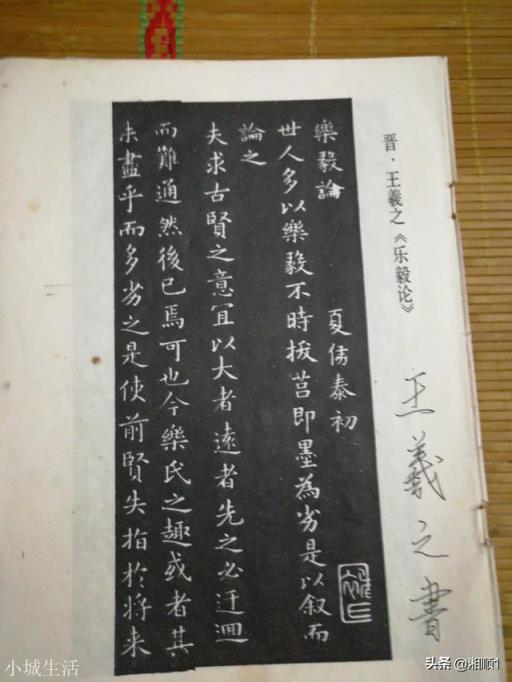 晋·王羲之《乐毅论》
王羲之書
樂毅論 夏侯泰初
世人多以樂毅不時拔莒即墨為劣是以叙而
論之
夫求古賢之意宜以大者遠者先之必迂迴
而難通然後已焉可也今樂氏之趣或者其
未盡乎而多劣之是使前賢失指於将来
小城生活
头条 @湘顺1